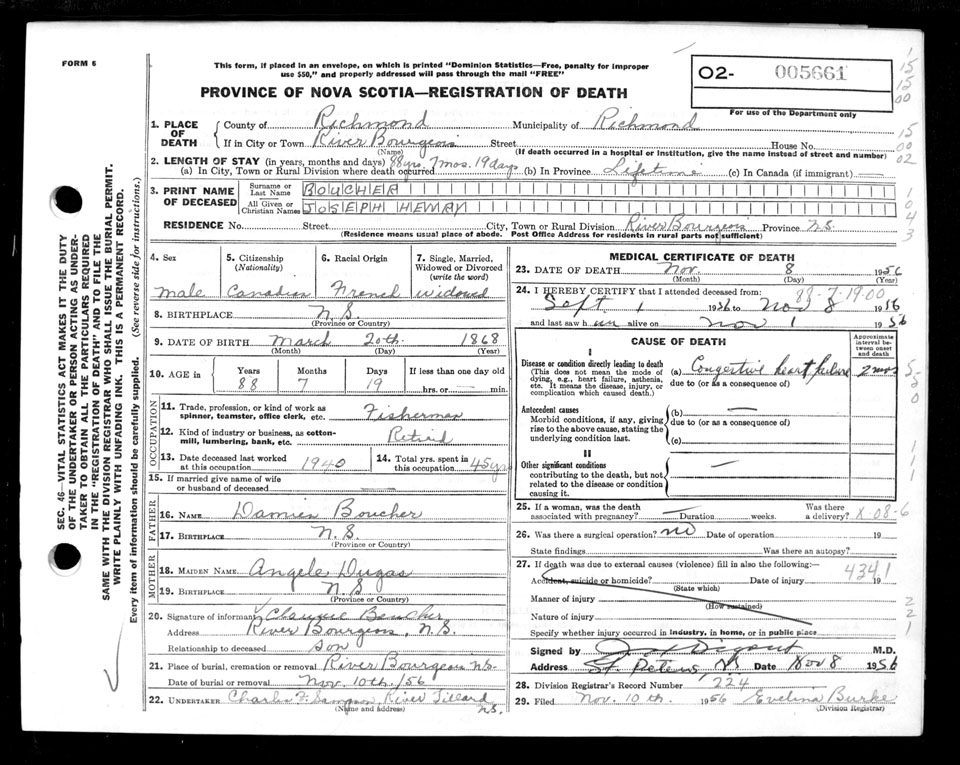 FORM 6
This form, if placed in an envelope, on which is printed "Dominion Statistics—Free, penalty for improper
use $50," and properly addressed will pass through the mail "FREE"
O2- 005661
For use of the Department only
PROVINCE OF NOVA SCOTIA—REGISTRATION OF DEATH
1. PLACE OF DEATH
County of Richmond Municipality of Richmond
If in City or Town River Bourgeois Street House No.
(Name) (If death occurred in a hospital or institution, give the name instead of street and number)
2. LENGTH OF STAY (in years, months and days) 88 yrs. 7 mos. 19 days
(a) In City, Town or Rural Division where death occurred (b) In Province Lifetime (c) In Canada (if immigrant) —
3. PRINT NAME OF DECEASED
Surname or Last Name BOUCHER
All Given or Christian Names JOSEPH HENRY
RESIDENCE No. Street City, Town or Rural Division River Bourgeois Province N.S.
(Residence means usual place of abode. Post Office Address for residents in rural parts not sufficient)
4. Sex
male
5. Citizenship (Nationality)
Canadian
6. Racial Origin
French
7. Single, Married, Widowed or Divorced (write the word)
widowed
8. BIRTHPLACE N.S.
(Province or Country)
9. DATE OF BIRTH March 20th. 1868
(Month) (Day) (Year)
10. AGE in Years Months Days If less than one day old
88 7 19 hrs. or — min.
OCCUPATION
11. Trade, profession, or kind of work as
spinner, teamster, office clerk, etc. Fisherman
12. Kind of industry or business, as cotton-
mill, lumbering, bank, etc. Retired
13. Date deceased last worked at this occupation 1940
14. Total yrs. spent in this occupation 45 yrs
15. If married give name of wife
or husband of deceased —
FATHER
16. NAME Damien Boucher
17. BIRTHPLACE N.S.
(Province or Country)
MOTHER
18. MAIDEN NAME Angele Dugas
19. BIRTHPLACE N.S.
(Province or Country)
20. Signature of informant Boucher
Address River Bourgeois, N.S.
Relationship to deceased son
21. Place of burial, cremation or removal River Bourgeois N.S.
Date of burial or removal Nov. 10th./56
22. UNDERTAKER Charles F. Sampson, River Tillard N.S.
(Name and address)
MEDICAL CERTIFICATE OF DEATH
23. DATE OF DEATH Nov. 8 1956
(Month) (Day)
88-7-19-00
24. I HEREBY CERTIFY that I attended deceased from:
Sept 1 1956 to Nov 8 1956
and last saw him alive on Nov 1 1956
CAUSE OF DEATH
Approximate interval between onset and death
I
Disease or condition directly leading to death
(This does not mean the mode of
dying, e.g., heart failure, asthenia,
etc. It means the disease, injury, or
complication which caused death.)
(a) Congestive heart failure 2 mos
due to (or as a consequence of)
Antecedent causes
Morbid conditions, if any, giving
rise to the above cause, stating the
underlying condition last.
(b) —
due to (or as a consequence of)
(c)
II
Other significant conditions
contributing to the death, but not
related to the disease or condition
causing it.
—
25. If a woman, was the death
associated with pregnancy? Duration weeks. Was there a delivery? X 08-6
26. Was there a surgical operation? no Date of operation 19
State findings Was there an autopsy?
27. If death was due to external causes (violence) fill in also the following:—
4341
Accident, suicide or homicide? Date of injury 19
(State which)
Manner of injury
(How sustained)
Nature of injury
Specify whether injury occurred in industry, in home, or in public place
Signed by M.D.
Address St. Peters NS Date Nov 8 1956
28. Division Registrar's Record Number 224
29. Filed Nov. 10th. 1956 Evelina Burke
(Division Registrar)
SEC. 46—VITAL STATISTICS ACT MAKES IT THE DUTY
OF THE UNDERTAKER OR PERSON ACTING AS UNDER-
TAKER TO OBTAIN ALL THE PARTICULARS REQUIRED
IN THE "REGISTRATION OF DEATH" AND TO FILE THE
SAME WITH THE DIVISION REGISTRAR WHO SHALL ISSUE THE BURIAL PERMIT.
WRITE PLAINLY WITH UNFADING INK. THIS IS A PERMANENT RECORD.
Every item of information should be carefully supplied. (See reverse side for instructions.)